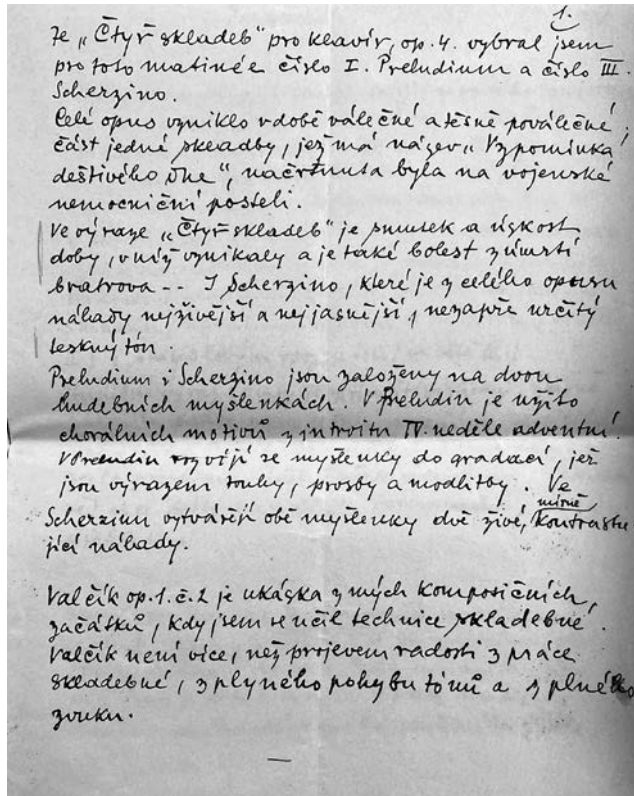 1.
Ze „Čtyř skladeb" pro klavír, op. 4. vybral jsem
pro toto matinée číslo I. Preludium a číslo III.
Scherzino.
Celé opus vzniklo v době válečné a těsně poválečné;
část jedné skladby, jež má název „Vzpomínka
deštivého dne", načrtnuta byla na vojenské
nemocniční posteli.
Ve výraze „Čtyř skladeb" je smutek a úzkost
doby, v níž vznikaly a je také bolest z úmrtí
bratrova -- I Scherzino, které je z celého opusu
nálady nejživější a nejjasnější, nezapře určitý
teskný tón.
Preludium i Scherzino jsou založeny na dvou
hudebních myšlenkách. V Preludiu je užito
chorálních motivů z introitu IV. neděle adventní.
V Preludiu rozvíjí se myšlenky do gradací, jež
jsou výrazem touhy, prosby a modlitby. Ve
Scherzinu vytvářejí obě myšlenky dvě živé, mírně kontrastu
jící nálady.
Valčík op. 1. č. 2 je ukázka z mých komposičních
začátků, kdy jsem se učil technice skladebné.
Valčík není více, než projevem radosti z práce
skladebné, z plyného pohybu tónů a z plného
zvuku.